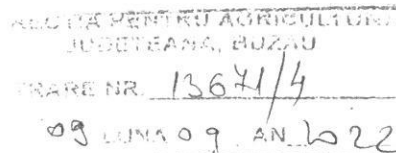 PENTRU AGRICULTURA
JUDEȚEANĂ, BUZĂU
NR. 13671/4
09 LUNA 09 AN 2022